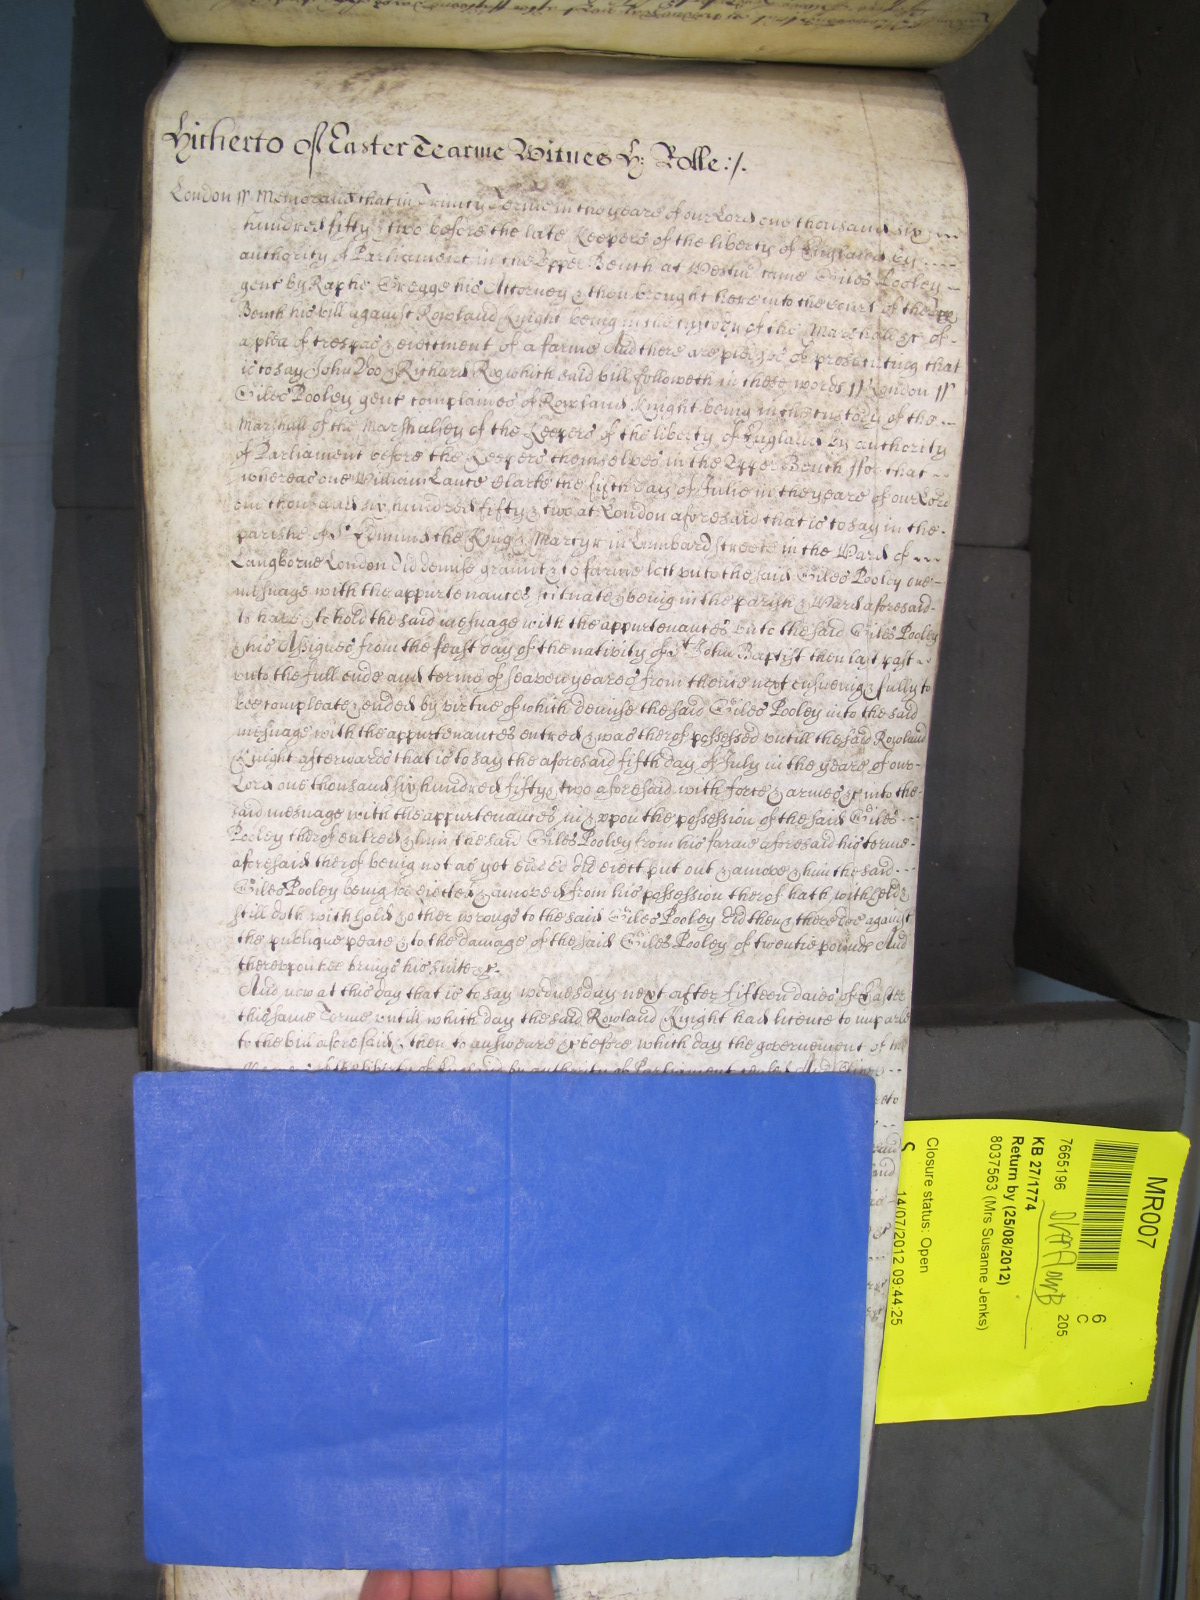 Hitherto of Easter Tearme Witnes H: Rolle:/.
London ss Memorand that in Trinity Terme in the yeare of our Lord one thousand six
hundred fifty & two before the late Keepers of the liberty of England by
authority of Parliament in the Upper Bench at Westm came Giles Pooley
gent by Raphe Gregge his Attorney & then brought here into the Court of the Upp
Bench his bill against Rowland Knight being in the custody of the Marshall &c of
a plea of trespas & eiectment of a farme And there are pledges of prosecuting that
is to say John Doo & Richard Roo which said bill followeth in these words ss London ss
Giles Pooley gent complaines of Rowland Knight being in the custody of the
Marshall of the Marshalsey of the Keepers of the liberty of England by authority
of Parliament before the Keepers themselves in the Upper Bench ffor that
whereas one William Lane Clarke the fifth day of Julie in the yeare of our Lord
one thousand six hundred fifty & two at London aforesaid that is to say in the
parishe of St Edmund the King & Martyr in Lumbard streete in the Ward of
Langborne London did demise graunt & to farme lett unto the said Giles Pooley one
mesuage with the appurtenances scituate & being in the parish & Ward aforesaid
To have & to hold the said mesuage with the appurtenances unto the said Giles Pooley
& his Assignes from the feast day of the nativity of St John Baptist then last past
unto the full ende and terme of seaven yeares from thence next ensueing & fully to
bee compleate & ended by virtue of which demise the said Giles Pooley into the said
mesuage with the appurtenances entred & was therof possessed untill the said Rowland
Knight afterwards that is to say the aforesaid fifth day of July in the yeare of our
Lord one thousand six hundred fifty & two aforesaid with force & armes &c into the
said mesuage with the appurtenances in & upon the possession of the said Giles
Pooley therof entred & him the said Giles Pooley from his farme aforesaid his terme
aforesaid therof being not as yet ended did eiect put out & amove & him the said
Giles Pooley being soe eiected & amoved from his possession therof hath withheld &
still doth withhold & other wrongs to the said Giles Pooley did then & there doe against
the publique peace & to the damage of the said Giles Pooley of twentie pounds And
thereupon hee brings his suite &c.
And now at this day that is to say wednesday next after fifteen daies of Easter
this same Terme untill which day the said Rowland Knight had licence to imparle
to the bill aforesaid & then to answeare & before which day the governement of the
of the liberty of England by authority of Parliament
MR007
6
C
7665196
205
KB 27/1774
Return by (25/08/2012)
8037563 (Mrs Susanne Jenks)
Closure status: Open
14/07/2012 09:44:25
S